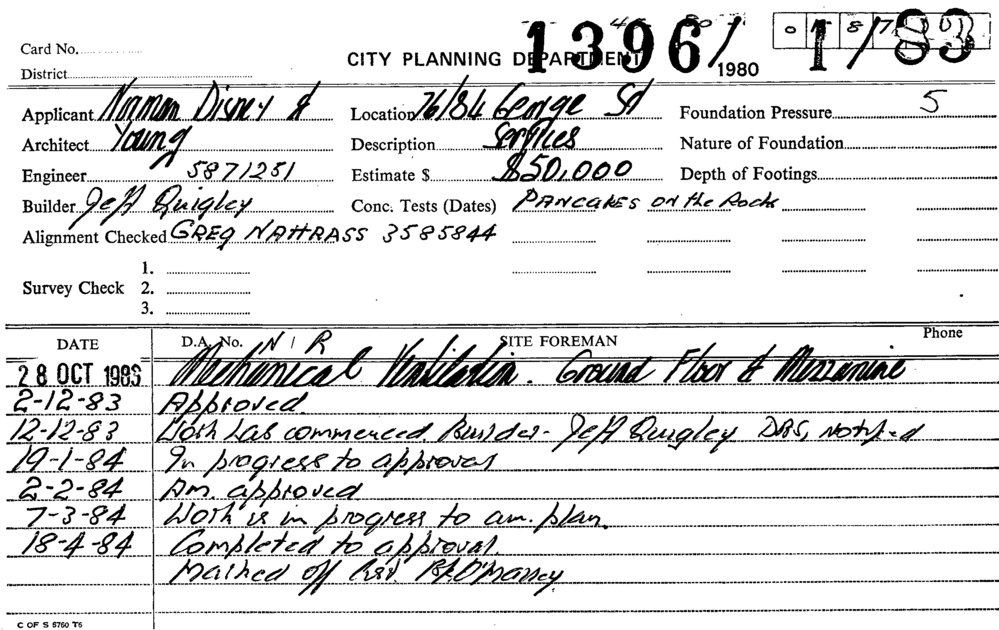 Card No.
CITY PLANNING DEPARTMENT
1396/ 1/83
1980
District
Applicant Norman Disney & Location 76/84 George St Foundation Pressure 5
Architect Young Description Services Nature of Foundation
Engineer 5871251 Estimate $ $50,000 Depth of Footings
Builder Jeff Quigley Conc. Tests (Dates) PANCAKES ON the Rocks
Alignment Checked GREG NAHRASS 3585844
1.
Survey Check 2.
3.
DATE D.A. No. N/R SITE FOREMAN Phone
28 OCT 1983 Mechanical Ventilation. Ground Floor & Mezzanine
2-12-83 Approved.
12-12-83 Work has commenced. Builder- Jeff Quigley DRS, Notified
19-1-84 In progress to approval
2-2-84 Am. approved
7-3-84 Work is in progress to am. plan.
18-4-84 Completed to approval.
Marked off
C OF S 5760 T6